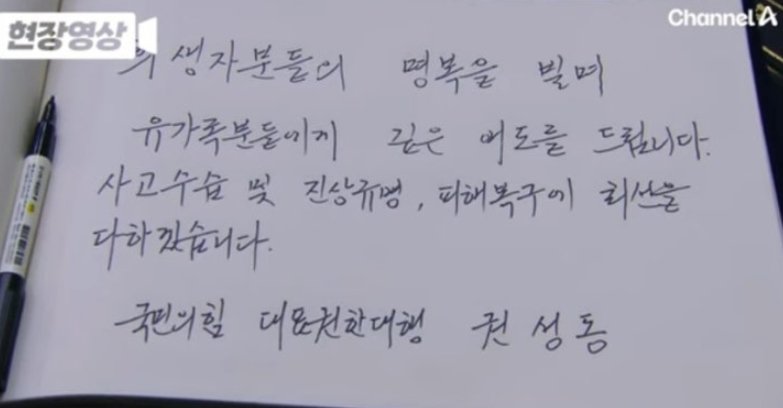 현장영상
Channel A
희생자분들의 명복을 빌며
유가족분들에게 깊은 위로를 드립니다.
사고수습 및 진상규명, 피해복구에 최선을
다하겠습니다.
국민의힘 대표권한대행 권성동